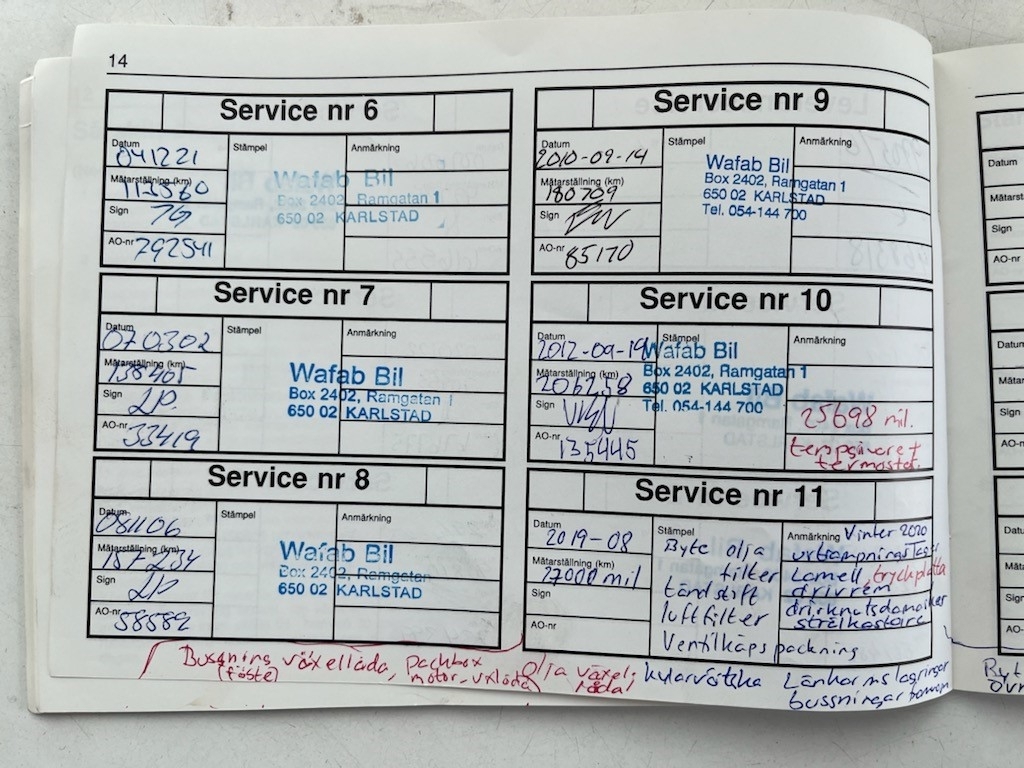 14
Service nr 6
Datum
041221
Stämpel
Anmärkning
Mätarställning (km)
Wafab Bil
Box 2402, Ramgatan 1
650 02 KARLSTAD
Sign
AO-nr
792541
Service nr 7
Datum
070302
Stämpel
Anmärkning
Mätarställning (km)
Wafab Bil
Box 2402, Ramgatan 1
650 02 KARLSTAD
Sign
AO-nr
33419
Service nr 8
Datum
081106
Stämpel
Anmärkning
Mätarställning (km)
Wafab Bil
Box 2402, Ramgatan
650 02 KARLSTAD
Sign
AO-nr
58582
Service nr 9
Datum
2010-09-14
Stämpel
Anmärkning
Mätarställning (km)
180709
Wafab Bil
Box 2402, Ramgatan 1
650 02 KARLSTAD
Tel. 054-144 700
Sign
AO-nr
85170
Service nr 10
Datum
2012-09-19
Stämpel
Anmärkning
Mätarställning (km)
206258
Wafab Bil
Box 2402, Ramgatan 1
650 02 KARLSTAD
Tel. 054-144 700
Sign
AO-nr
135445
25698 mil.
Service nr 11
Datum
2019-08
Mätarställning (km)
27000 mil
Sign
AO-nr
Stämpel
Byte olja
filter
tändstift
luftfilter
Ventilkåpspackning
Anmärkning
Vinter 2020
urtrampningslager
Lamell, tryckplatta
drivrem
strålkastare
Bussning växellåda, packbox
(fäste)
olja växel.
låda!
kylarvätska
Länkarmslagringar
bussningar
Datum
Sign
AO-nr
Datum
Sign
AO-nr